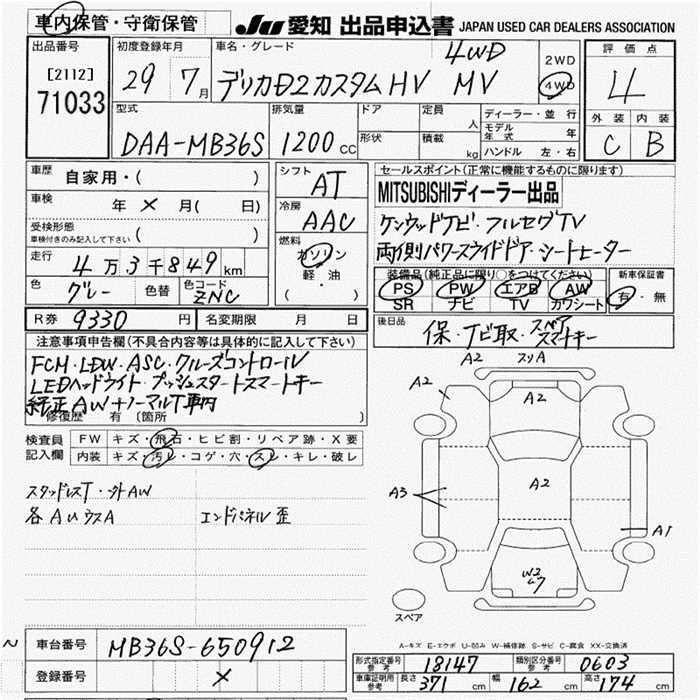 車内保管・守衛保管
JU 愛知 出品申込書 JAPAN USED CAR DEALERS ASSOCIATION
出品番号
[2112]
71033
初度登録年月
29 7月
車名・グレード
4WD
デリカD2カスタムHV MV
2WD
4WD
評価点
4
外装 内装
C B
型式
DAA-MB36S
排気量
1200 CC
ドア
形状
定員 人
積載 kg
ディーラー・並行
モデル年式 年
ハンドル 左・右
車歴 自家用・( )
車検 年 × 月( 日)
受検形態
車検付きのみ記入して下さい ( )
走行 4万3千849km
色 グレー 色替 色コード ZNC
シフト
AT
冷房
AAC
燃料
ガソリン
軽・油
( )
セールスポイント(正常に機能するものに限ります)
MITSUBISHIディーラー出品
ケンウッドナビ・フルセグTV
両側パワースライドドア・シートヒーター
装備品(純正品に限り○をつけてください)
PS PW エアB AW
SR ナビ TV カワシート
新車保証書
有・無
R券 9330 円 名変期限 月 日
後日品
保・ナビ取・スペアスマートキー
注意事項申告欄(不具合内容等は具体的に記入して下さい)
FCM・LDW・ASC・クルーズコントロール
LEDヘッドライト・プッシュスタートスマートキー
純正AW+ノーマルT車内
修復歴 有〔箇所 〕
検査員記入欄
FW キズ・飛石・ヒビ割・リペア跡・X要
内装 キズ・汚レ・コゲ・穴・スレ・キレ・破レ
スタッドレスT・外AW
各AUウスA エンドパネル歪
A2 スリA
A2
A2
A2
A3
A1
W2
ムラ
スペア
A-キズ E-エクボ U-凹み W-補修跡 S-サビ C-腐食 XX-交換済
~ 車台番号 MB36S-650912
登録番号 ×
形式指定番号 参考 18147 類別区分番号 参考 0603
車庫証明用 参考 長さ 371 cm 幅 162 cm 高さ 174 cm